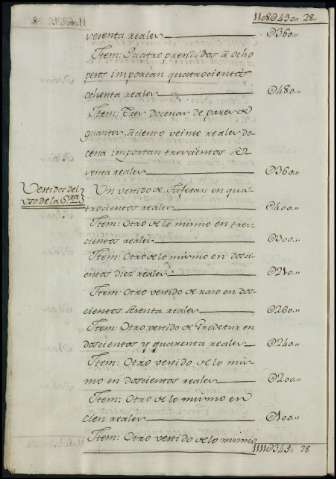 sesenta reales — @360..
Item: Quatro prendidos à ocho
pesos importan quatrocientos
ochenta reales — @480..
Item: Tres docenas de pares de
guantes, à ciento veinte reales do-
cena importan trescientos se-
senta reales — @360..
Vestidos del
uso de la S.ra
Un vestido de tafetan en qua-
trocientos reales — @400..
Item: Otro de lo mismo en tres-
cientos reales — @300..
Item: Otro de lo mismo en dosci-
entos diez reales — @210..
Item: Otro vestido de raso en dos-
cientos reales — @260..
Item: Otro vestido de en
doscientos y quarenta reales — @240..
Item: Otro vestido de lo mis-
mo en doscientos reales — @200..
Item: Otro de lo mismo en
cien reales — @100..
Item: Otro vestido de lo mismo